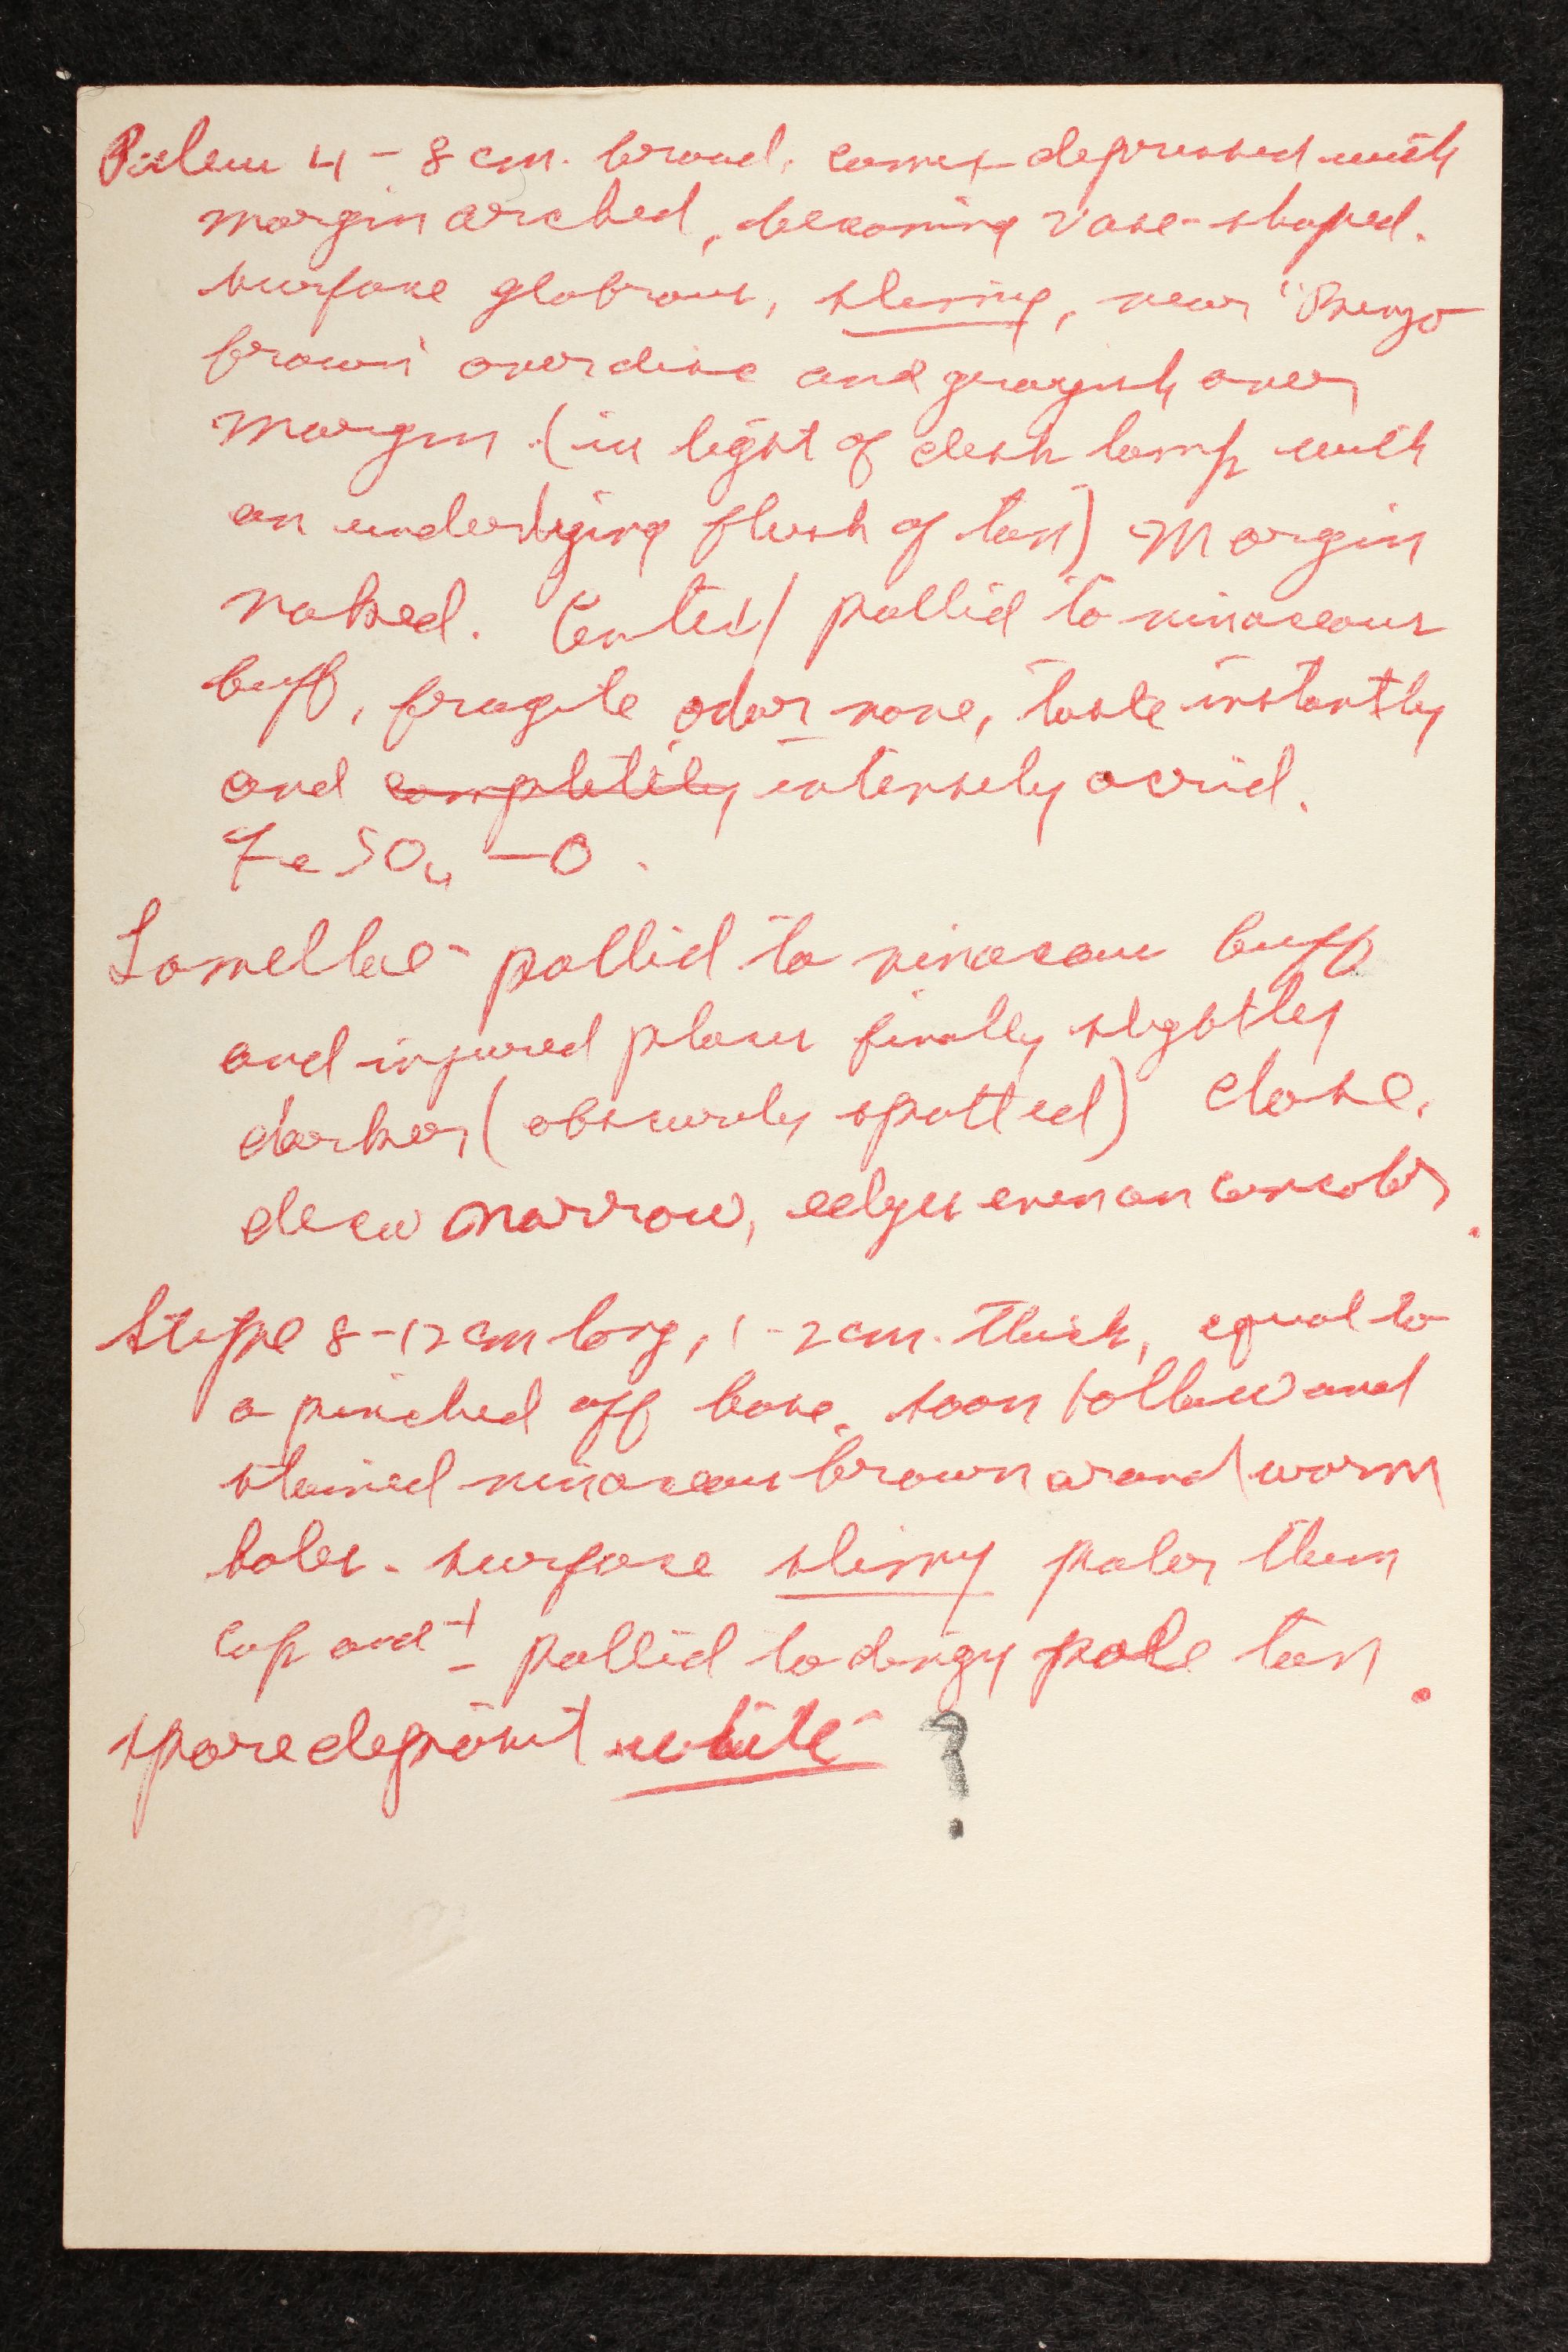 Pileus 4 – 8 cm. broad, convex depressed with
margin arched, becoming vase-shaped.
surface glabrous, slimy, near "Benzo
brown" over disc and grayish over
margin. (in light of desk lamp with
an underlying flush of tan) Margin
naked. Context pallid to vinaceous
buff, fragile odor none, taste instantly
and completely intensely acrid.
FeSO4 – O.
Lamellae – pallid to vinaceous buff
and injured places finally slightly
darker (obscurely spotted) close,
decu narrow, edges even an concolor.
Stipe 8–12 cm long, 1–2 cm. thick, equal to
a pinched off base, soon hollow and
stained vinaceous brown around worm
holes – surface slimy paler than
cap and ± pallid to dingy pale tan.
spore deposit white ?